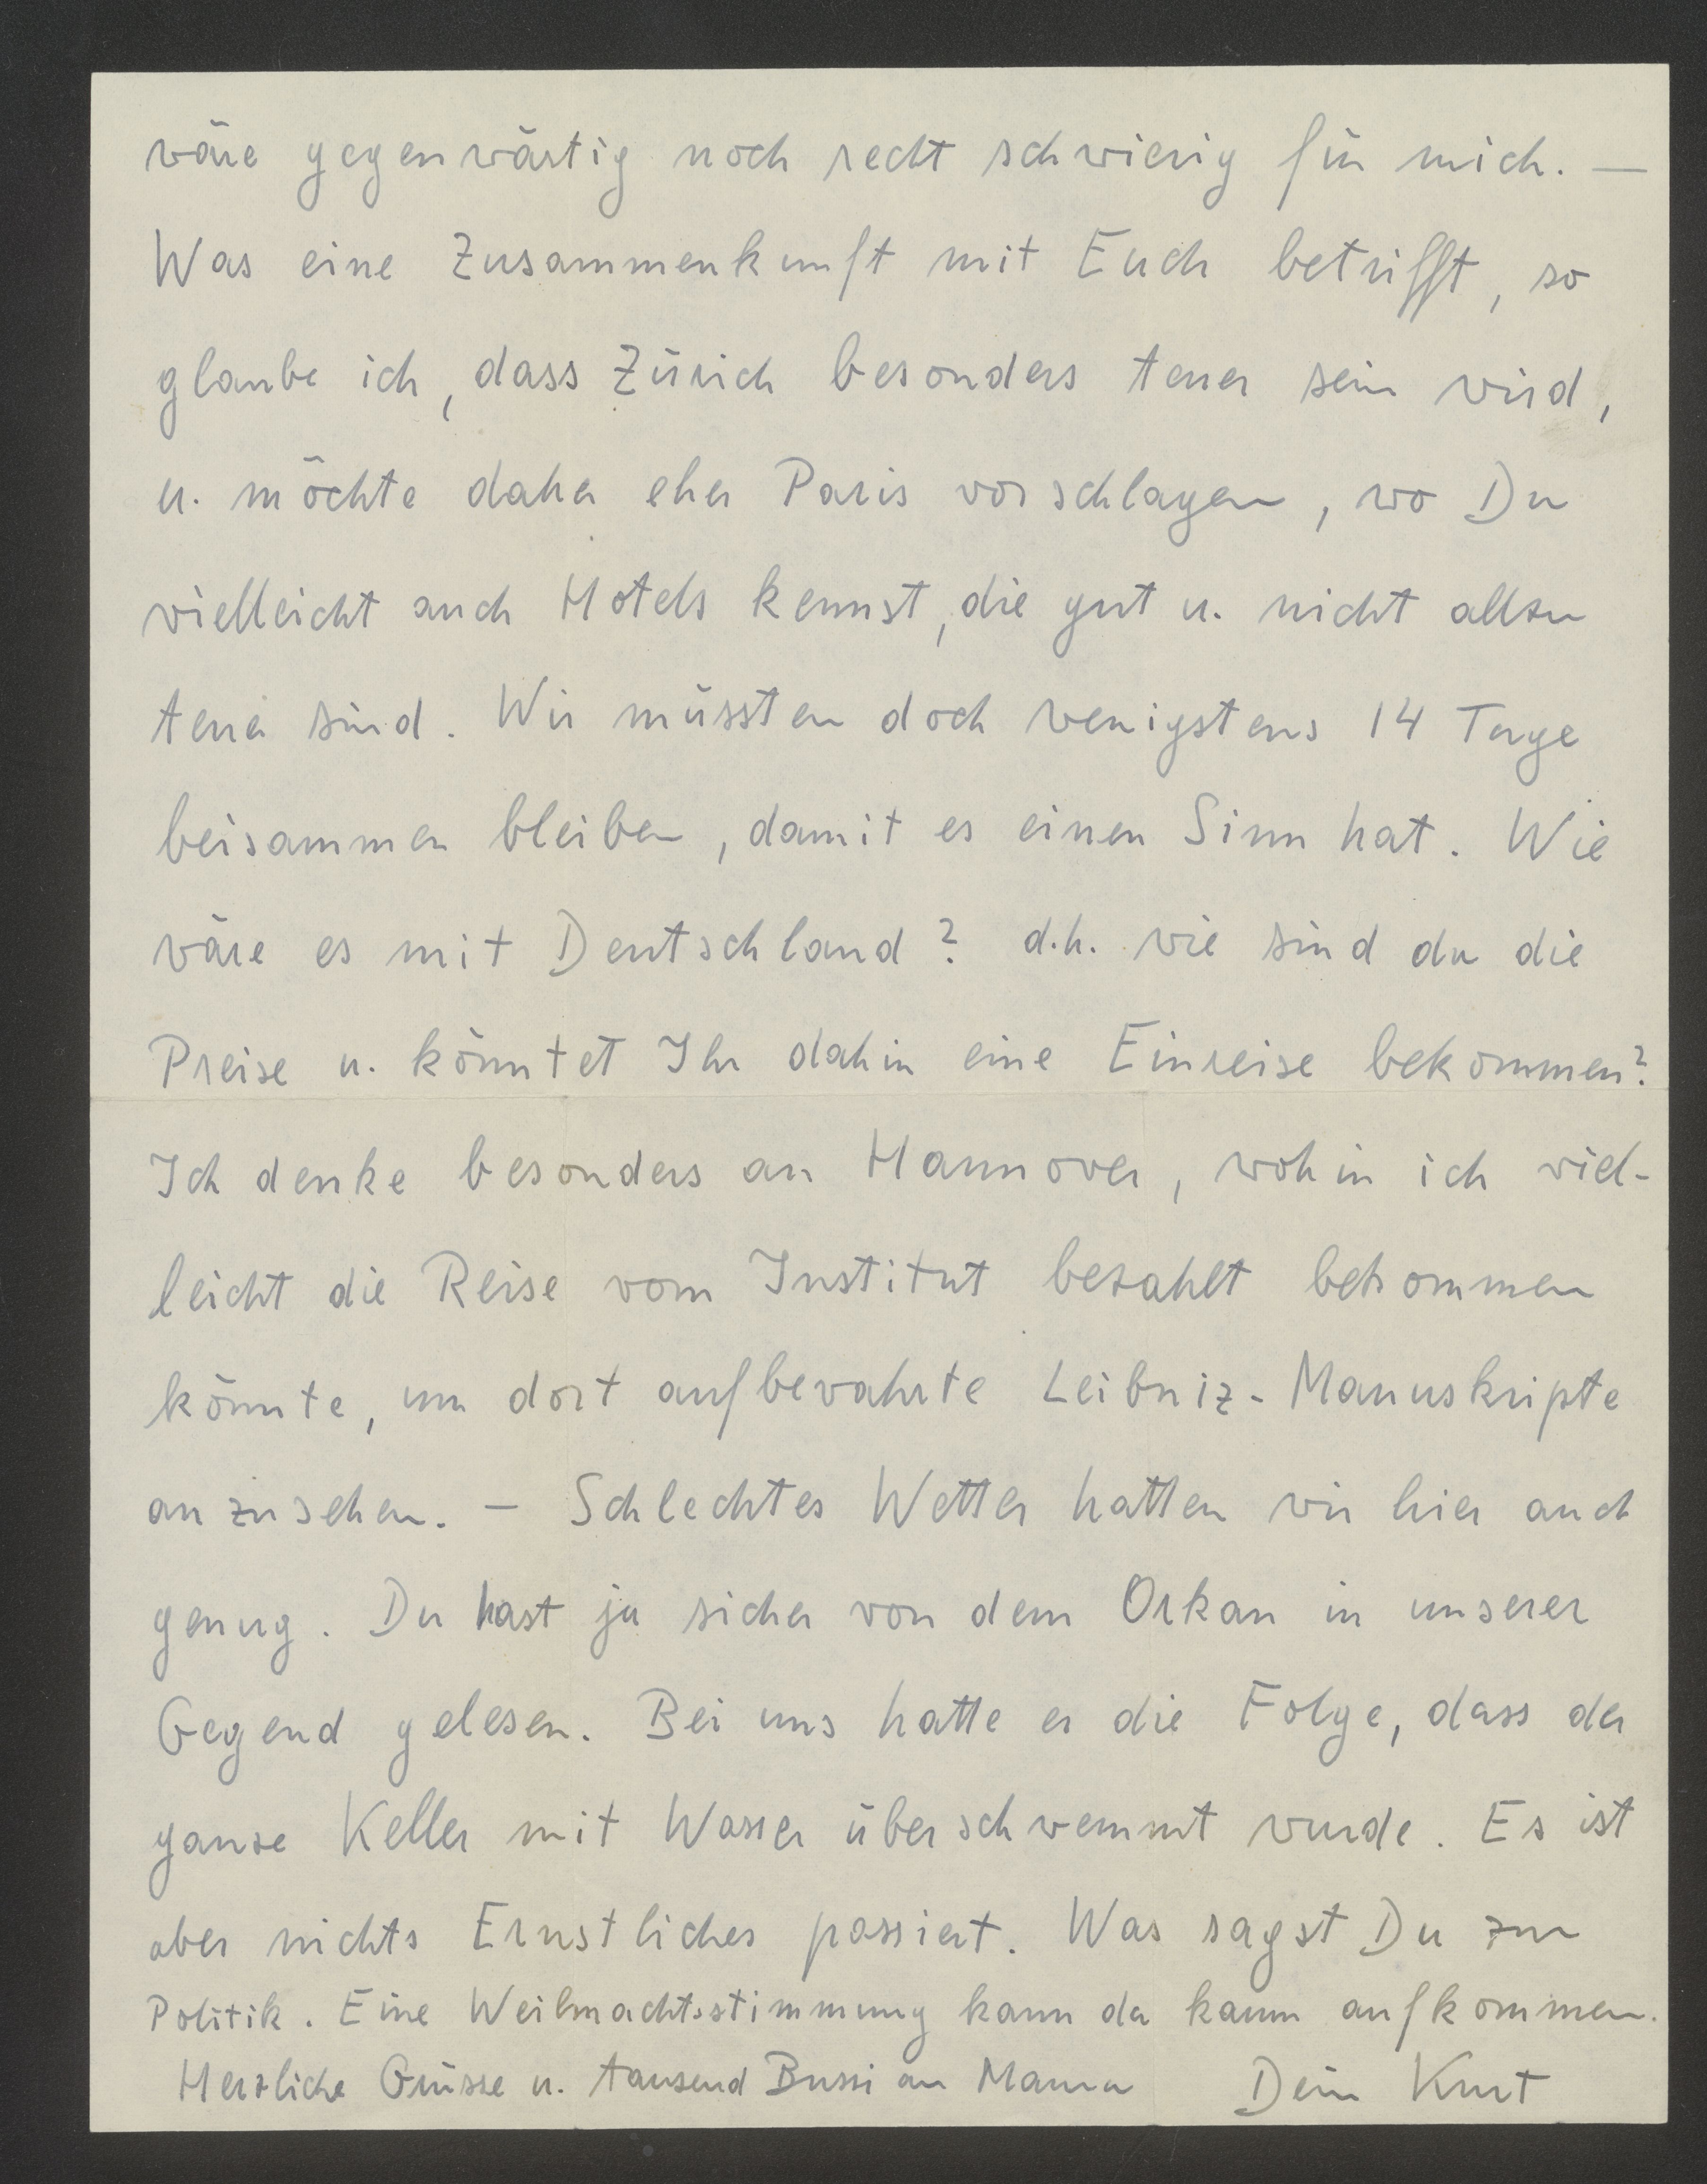 wäre gegenwärtig noch recht schwierig für mich. —
Was eine Zusammenkunft mit Euch betrifft, so
glaube ich, dass Zürich besonders teuer sein wird,
u. möchte daher eher Paris vorschlagen, wo Du
vielleicht auch Hotels kennst, die gut u. nicht allzu
teuer sind. Wir müssten doch wenigstens 14 Tage
beisammen bleiben, damit es einen Sinn hat. Wie
wäre es mit Deutschland? d.h. wie sind da die
Preise u. könntet Ihr dahin eine Einreise bekommen?
Ich denke besonders an Hannover, wohin ich viel-
leicht die Reise vom Institut bezahlt bekommen
könnte, um dort aufbewahrte Leibniz-Manuskripte
anzusehen. — Schlechtes Wetter hatten wir hier auch
genug. Du hast ja sicher von dem Orkan in unserer
Gegend gelesen. Bei uns hatte er die Folge, dass der
ganze Keller mit Wasser überschwemmt wurde. Es ist
aber nichts Ernstliches passiert. Was sagst Du zur
Politik. Eine Weihnachtsstimmung kann da kaum aufkommen.
Herzliche Grüsse u. tausend Bussi an Mama Dein Kurt